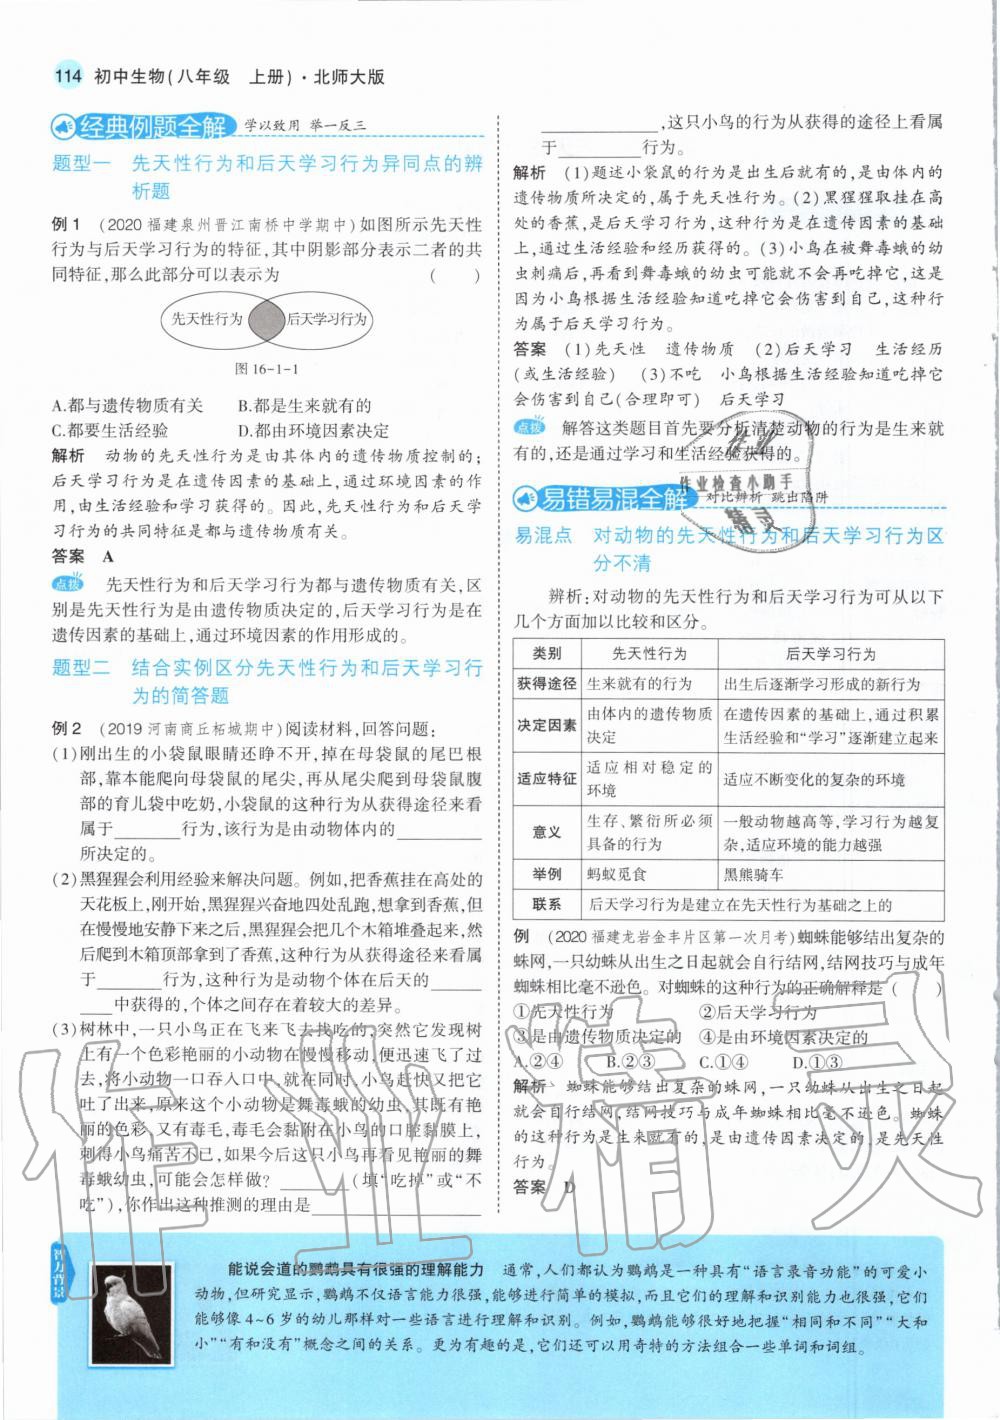 114 初中生物(八年级 上册)·北师大版
经典例题全解 学以致用 举一反三
题型一 先天性行为和后天学习行为异同点的辨
析题
例1 (2020福建泉州晋江南桥中学期中)如图所示先天性
行为与后天学习行为的特征,其中阴影部分表示二者的共
同特征,那么此部分可以表示为 ( )
先天性行为 后天学习行为
图16-1-1
A.都与遗传物质有关 B.都是生来就有的
C.都要生活经验 D.都由环境因素决定
解析 动物的先天性行为是由其体内的遗传物质控制的;
后天学习行为是在遗传因素的基础上,通过环境因素的作
用,由生活经验和学习获得的。因此,先天性行为和后天学
习行为的共同特征是都与遗传物质有关。
答案 A
点拨 先天性行为和后天学习行为都与遗传物质有关,区
别是先天性行为是由遗传物质决定的,后天学习行为是在
遗传因素的基础上,通过环境因素的作用形成的。
题型二 结合实例区分先天性行为和后天学习行
为的简答题
例2 (2019河南商丘柘城期中)阅读材料,回答问题:
(1)刚出生的小袋鼠眼睛还睁不开,掉在母袋鼠的尾巴根
部,靠本能爬向母袋鼠的尾尖,再从尾尖爬到母袋鼠腹
部的育儿袋中吃奶,小袋鼠的这种行为从获得途径来看
属于________行为,该行为是由动物体内的__________
所决定的。
(2)黑猩猩会利用经验来解决问题。例如,把香蕉挂在高处的
天花板上,刚开始,黑猩猩兴奋地四处乱跑,想拿到香蕉,但
在慢慢地安静下来之后,黑猩猩会把几个木箱堆叠起来,然
后爬到木箱顶部拿到了香蕉,这种行为从获得途径来看属
于________行为,这种行为是动物个体在后天的______
____中获得的,个体之间存在着较大的差异。
(3)树林中,一只小鸟正在飞来飞去找吃的,突然它发现树
上有一个色彩艳丽的小动物在慢慢移动,便迅速飞了过
去,将小动物一口吞入口中,就在同时,小鸟又把小动物
吐了出来,原来这个小动物是舞毒蛾的幼虫,其既有艳
丽的色彩,又有毒毛,毒毛会黏附在小鸟的口腔黏膜上,
刺得小鸟痛苦不已,如果今后这只小鸟再看见艳丽的舞
毒蛾幼虫,可能会怎样做? ________(填“吃掉”或“不
吃”),你作出这种推测的理由是____________________
______________,这只小鸟的行为从获得的途径上看属
于__________行为。
解析 (1)题述小袋鼠的行为是出生后就有的,是由体内的
遗传物质所决定的,属于先天性行为。(2)黑猩猩取挂在高
处的香蕉,是后天学习行为,这种行为是在遗传因素的基础
上,通过生活经验和经历获得的。(3)小鸟在被舞毒蛾的幼
虫刺痛后,再看到舞毒蛾的幼虫可能就不会再吃掉它,这是
因为小鸟根据生活经验知道吃掉它会伤害到自己,这种行
为属于后天学习行为。
答案 (1)先天性 遗传物质 (2)后天学习 生活经历
(或生活经验) (3)不吃 小鸟根据生活经验知道吃掉它
会伤害到自己(合理即可) 后天学习
点拨 解答这类题目首先要分析清楚动物的行为是生来就
有的,还是通过学习和生活经验获得的。
作业
作业检查小助手
精灵
易错易混全解 对比辨析 跳出陷阱
易混点 对动物的先天性行为和后天学习行为区
分不清
辨析:对动物的先天性行为和后天学习行为可从以下
几个方面加以比较和区分。
类别 先天性行为 后天学习行为
获得途径 生来就有的行为 出生后逐渐学习形成的新行为
决定因素 由体内的遗传物质决定 在遗传因素的基础上,通过积累生活经验和“学习”逐渐建立起来
适应特征 适应相对稳定的环境 适应不断变化的复杂的环境
意义 生存、繁衍所必须具备的行为 一般动物越高等,学习行为越复杂,适应环境的能力越强
举例 蚂蚁觅食 黑熊骑车
联系 后天学习行为是建立在先天性行为基础之上的
例 (2020福建龙岩金丰片区第一次月考)蜘蛛能够结出复杂的
蛛网,一只幼蛛从出生之日起就会自行结网,结网技巧与成年
蜘蛛相比毫不逊色。对蜘蛛的这种行为的正确解释是( )
①先天性行为 ②后天学习行为
③是由遗传物质决定的 ④是由环境因素决定的
A.②④ B.②③ C.①④ D.①③
解析 蜘蛛能够结出复杂的蛛网,一只幼蛛从出生之日起
就会自行结网,结网技巧与成年蜘蛛相比毫不逊色。蜘蛛
的这种行为是生来就有的,是由遗传因素决定的,是先天性
行为。
答案 D
作业精灵
智力背景
能说会道的鹦鹉具有很强的理解能力 通常,人们都认为鹦鹉是一种具有“语言录音功能”的可爱小
动物,但研究显示,鹦鹉不仅语言能力很强,能够进行简单的模拟,而且它们的理解和识别能力也很强,它们
能够像4~6岁的幼儿那样对一些语言进行理解和识别。例如,鹦鹉能够很好地把握“相同和不同”“大和
小”“有和没有”概念之间的关系。更为有趣的是,它们还可以用奇特的方法组合一些单词和词组。